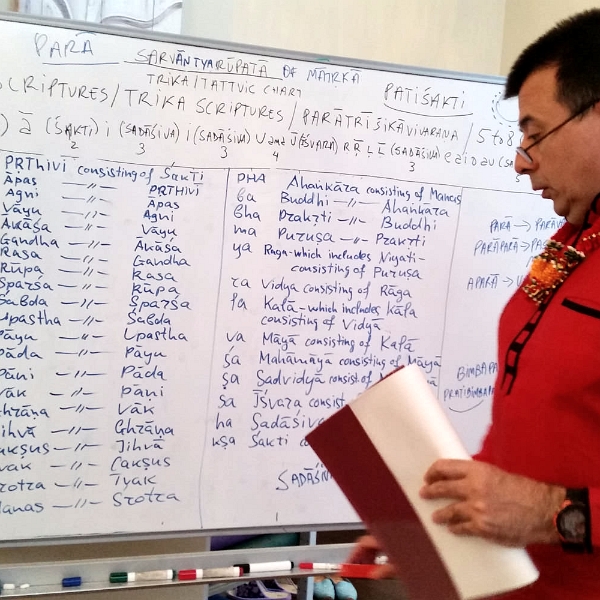 PARĀ SARVĀNTYARŪPATĀ OF MĀTṚKĀ
TRIKA/TATTVIC CHART PATIŚAKTI
SCRIPTURES/TRIKA SCRIPTURES/PARĀTRĪŚIKĀVIVARAṆA/5 to 8
ā (ŚAKTI) i (SADĀŚIVA) ī (SADĀŚIVA) U and Ū (ĪŚVARA) Ṛ Ṝ Ḷ Ḹ (SADĀŚIVA) e ai o au
2 3 3 4 3
PṚTHIVĪ consisting of Śakti
Āpas —//— PṚTHIVĪ
Agni —//— Āpas
Vāyu —//— Agni
Ākāśa —//— Vāyu
Gandha —//— Ākāśa
Rasa —//— Gandha
Rūpa —//— Rasa
Sparśa —//— Rūpa
Śabda —//— Sparśa
Upastha —//— Śabda
Pāyu —//— Upastha
Pāda —//— Pāyu
Pāṇi —//— Pāda
Vāk —//— Pāṇi
Ghrāṇa —//— Vāk
Jihvā —//— Ghrāṇa
Cakṣus —//— Jihvā
Tvak —//— Cakṣus
Śrotra —//— Tvak
Manas —//— Śrotra
PHA Ahaṅkāra consisting of Manas
ba Buddhi —//— Ahaṅkāra
bha Prakṛti —//— Buddhi
ma Puruṣa —//— Prakṛti
ya Rāga-which includes Niyati-
consisting of Puruṣa
ra Vidyā consisting of Rāga
la Kalā-which includes Kāla
consisting of Vidyā
va Māyā consisting of Kalā
śa Mahāmāyā consisting of Māyā
ṣa Sadvidyā consist. of
sa Īśvara consist
ha Sadāśiva
kṣa Śakti
PARĀ →
PARĀPARĀ →
APARĀ →